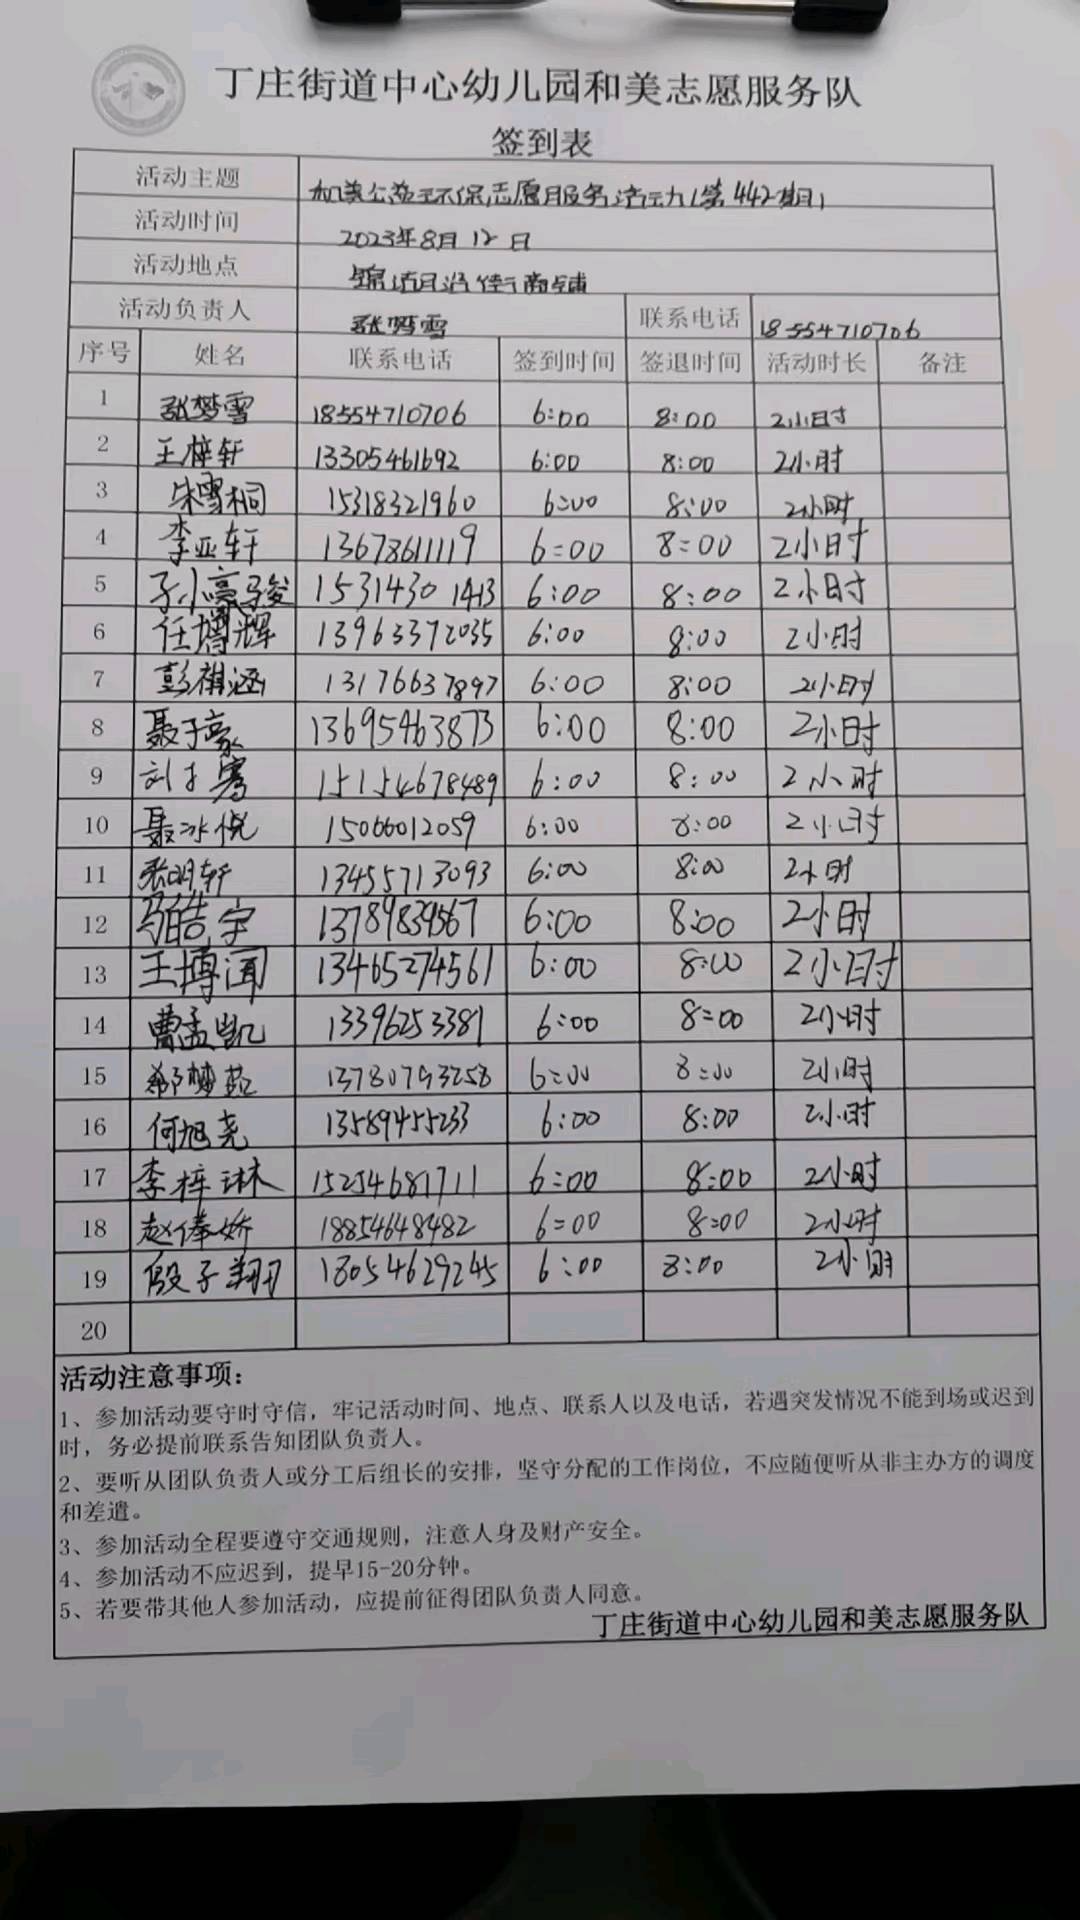 丁庄街道中心幼儿园和美志愿服务队
签到表
活动主题 和美公益环保志愿服务活动(第442期)
活动时间 2023年8月12日
活动地点 商铺
活动负责人 张梦雪 联系电话 18554710706
序号 姓名 联系电话 签到时间 签退时间 活动时长 备注
1 张梦雪 18554710706 6:00 8:00 2小时
2 王梓轩 13305461692 6:00 8:00 2小时
3 朱雪桐 15318321960 6:00 8:00 2小时
4 李亚轩 13678611119 6:00 8:00 2小时
5 15314301413 6:00 8:00 2小时
6 任增辉 13963372035 6:00 8:00 2小时
7 彭祺涵 13176637897 6:00 8:00 2小时
8 聂子豪 13695463873 6:00 8:00 2小时
9 刘子骞 15154678489 6:00 8:00 2小时
10 聂冰悦 15066012059 6:00 8:00 2小时
11 张明轩 13455713093 6:00 8:00 2小时
12 马皓宇 13789839567 6:00 8:00 2小时
13 王博闻 13465274561 6:00 8:00 2小时
14 曹孟凯 13396253381 6:00 8:00 2小时
15 13780793258 6:00 8:00 2小时
16 何旭尧 13589455233 6:00 8:00 2小时
17 李梓琳 15254681711 6:00 8:00 2小时
18 赵俸娇 18854648482 6:00 8:00 2小时
19 殷子翔 18054629245 6:00 8:00 2小时
20
活动注意事项：
1、参加活动要守时守信，牢记活动时间、地点、联系人以及电话，若遇突发情况不能到场或迟到
时，务必提前联系告知团队负责人。
2、要听从团队负责人或分工后组长的安排，坚守分配的工作岗位，不应随便听从非主办方的调度
和差遣。
3、参加活动全程要遵守交通规则，注意人身及财产安全。
4、参加活动不应迟到，提早15-20分钟。
5、若要带其他人参加活动，应提前征得团队负责人同意。
丁庄街道中心幼儿园和美志愿服务队